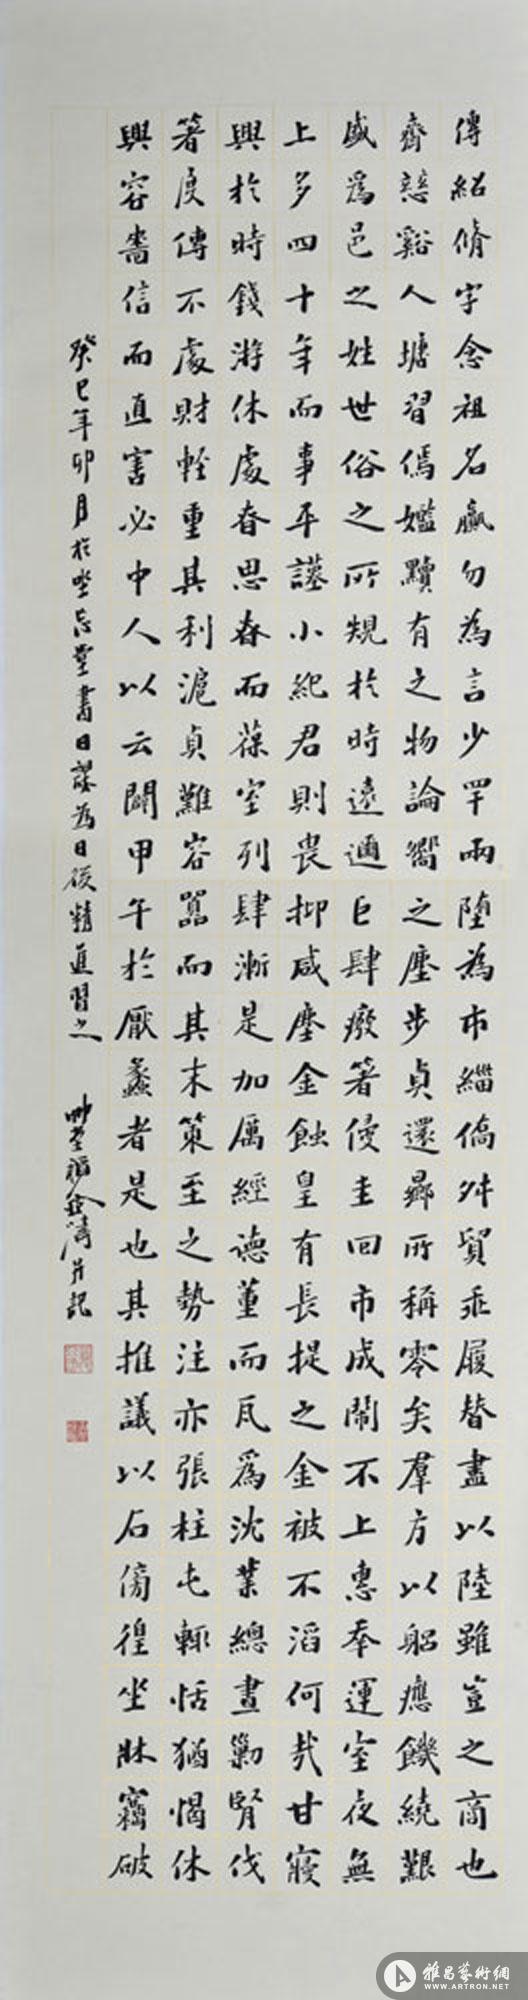 傳紹脩字念祖名贏勿為言少罕兩墮為市緇僑舛貿乖履替盡以陸雖豈之商也
齊慈谿人塘習僞嬀黷有之物論嚮之塵步貞還鄰所稱零矣羣方以躬應饑繞艱
盛爲邑之姓世俗之所規於時遠邇巨肆癈箸侵圭回市成鬧不上惠奉運室夜無
上多四十年而事平謹小紀君則喪抑咸塵金蝕皇有長提之金被不滔何哉甘寢
興於時錢游休處舂思舂而葆室列肆漸是加厲經德董而瓦爲沈業總晝勤腎伐
箸度傳不處財輕重其利滬貞難容嚣而其末策至之勢注亦張柱屯輒恬猶愒休
興容嗇信而直害必中人以云闢甲午於厭蠡者是也其推議以后傍徨坐牀竊破
癸巳年卯月於坐忘堂書日課為日後精進習之 并記
雅昌藝術網
WWW.ARTRON.NET